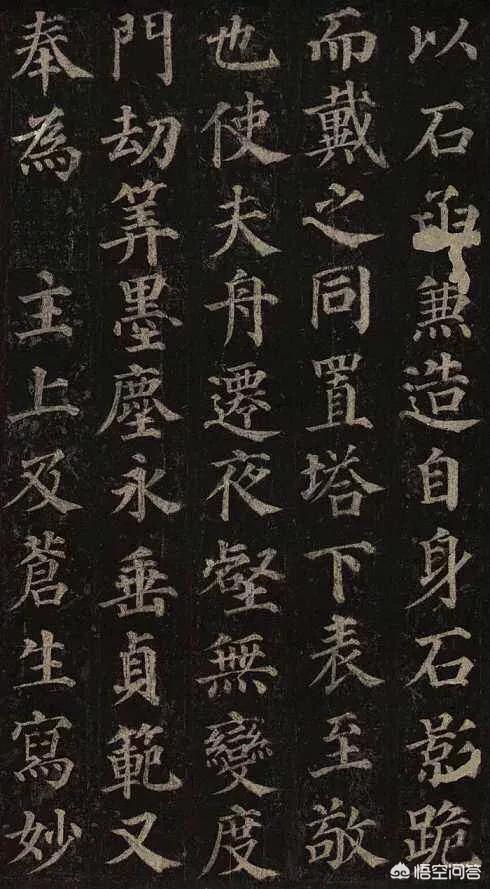 以石函兼造自身石影跪
而戴之同置塔下表至敬
也使夫舟遷夜壑無變度
門劫筭墨塵永垂貞範又
奉為 主上及蒼生寫妙
悟空问答